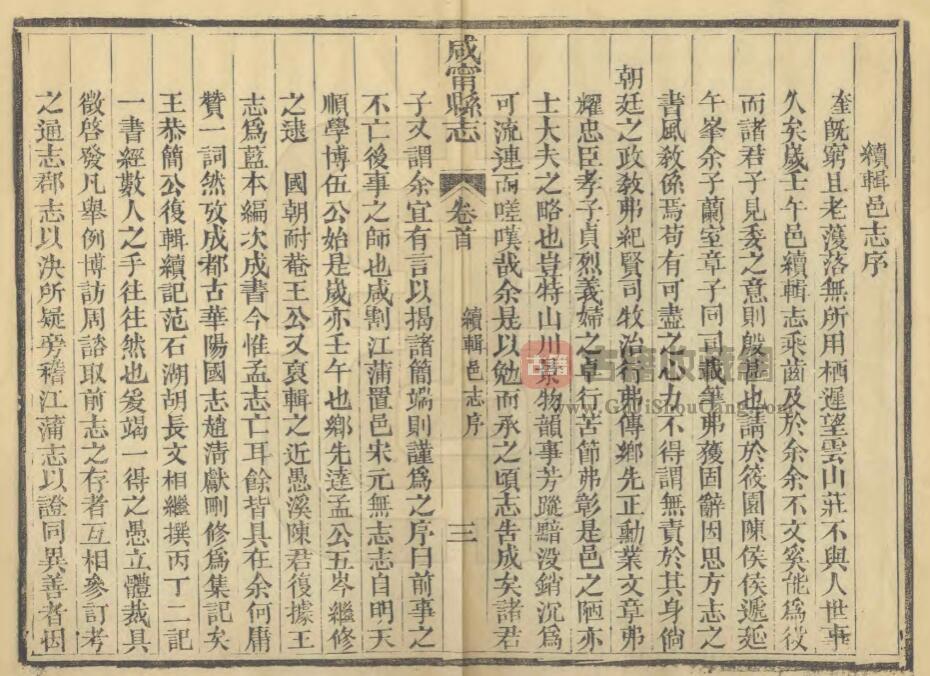 續輯邑志序
奎既窮且老濩落無所用栖遲望雲山莊不與人世事
久矣歲壬午邑續輯志乘齒及於余余不文奚能爲役
而諸君子見委之意則殷甚也請於筱園陳侯侯遞延
午峯余子蘭室章子同司載筆弗獲固辭因思方志之
書風敎係焉苟有可盡之心力不得謂無責於其身倘
朝廷之政敎弗紀賢司牧治行弗傳鄉先正勳業文章弗
耀忠臣孝子貞烈義婦之卓行苦節弗彰是邑之陋亦
士大夫之略也豈特山川景物韻事芳蹤黯没銷沉爲
可流連而嗟嘆哉余是以勉而承之頃志告成矣諸君
咸甯縣志 卷首 續輯邑志序 三
子又謂余宜有言以揭諸簡端則謹爲之序曰前事之
不亡後事之師也咸割江蒲置邑宋元無志志自明天
順學博伍公始是歲亦壬午也鄉先達孟公五岑繼修
之逮 國朝耐菴王公又裒輯之近愚溪陳君復據王
志爲藍本編次成書今惟孟志亡耳餘皆具在余何庸
贊一詞然攷成都古華陽國志趙淸獻刪修爲集記矣
王恭簡公復輯續記范石湖胡長文相繼撰丙丁二記
一書經數人之手往往然也爰竭一得之愚立體裁具
徵啓發凡舉例博訪周諮取前志之存者互相參訂考
之通志郡志以決所疑旁稽江蒲志以證同異善者因
古籍收藏網
www.GuJiShouCang.com